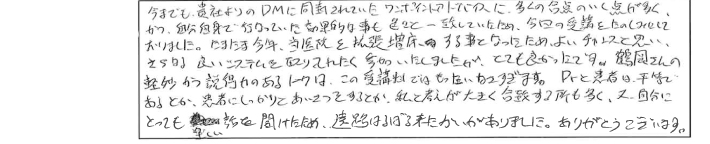 今までも、貴社よりのDMに同封されていたワンポイントアドバイスに、多くの合点のいく点が多く、
かつ、自分自身で行なっていた効果的な事も色々と一致していたため、今回の受講をたのしみにして
おりました。たまたま今年、当医院を拡張増床する事となったため、よいチャンスと思い、
さらなる良いシステムを取り入れたく参加いたしましたが、とても良かったです。鶴岡さんの
軽妙かつ説得力のあるトークは、この受講料ではもったいなさすぎます。Drと患者は平等で
あるとか、患者にしっかりとあいさつをするとか、私と考えが大きく合致する所も多く、又自分に
とっても楽しい話を聞けたため、遠路はるばる来たかいがありました。ありがとうございます。